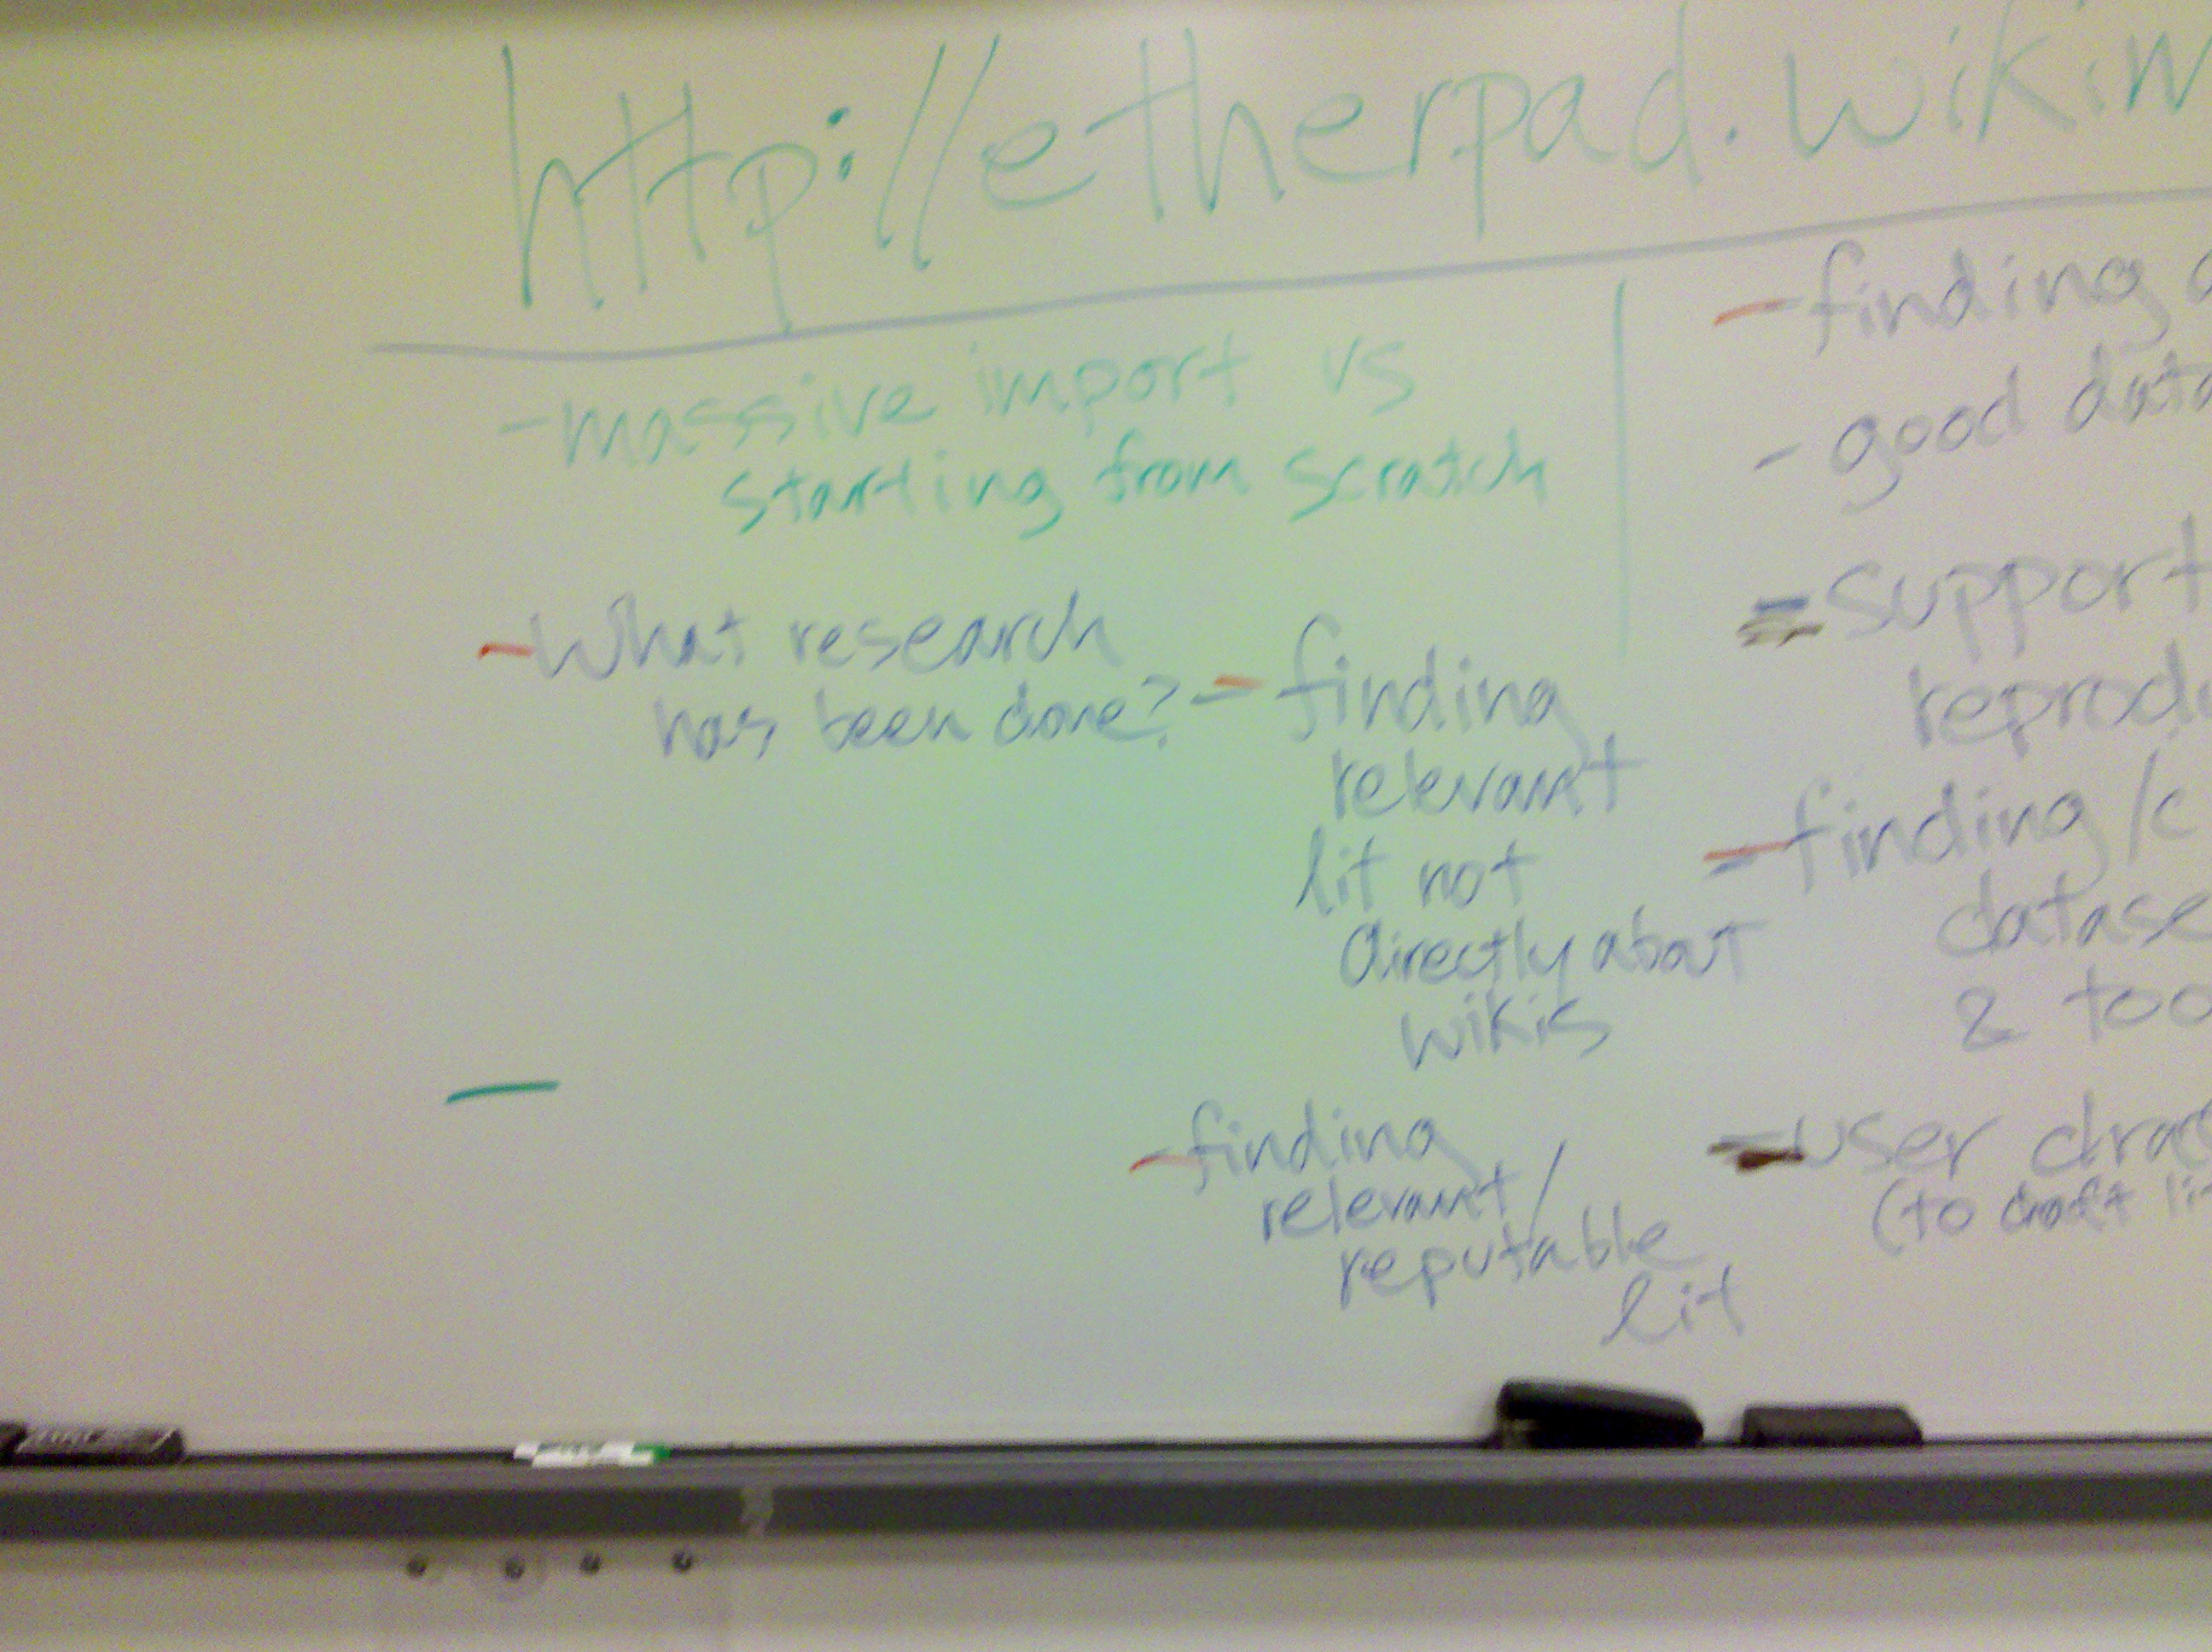 http://etherpad.wikim
- massive import vs
starting from scratch
- What research
has been done?
- finding
relevant
lit not
directly about
wikis
- finding
relevant/
reputable
lit
- finding
- good data
= support
reprodu
- finding/c
datase
& too
= user
(to draft lit